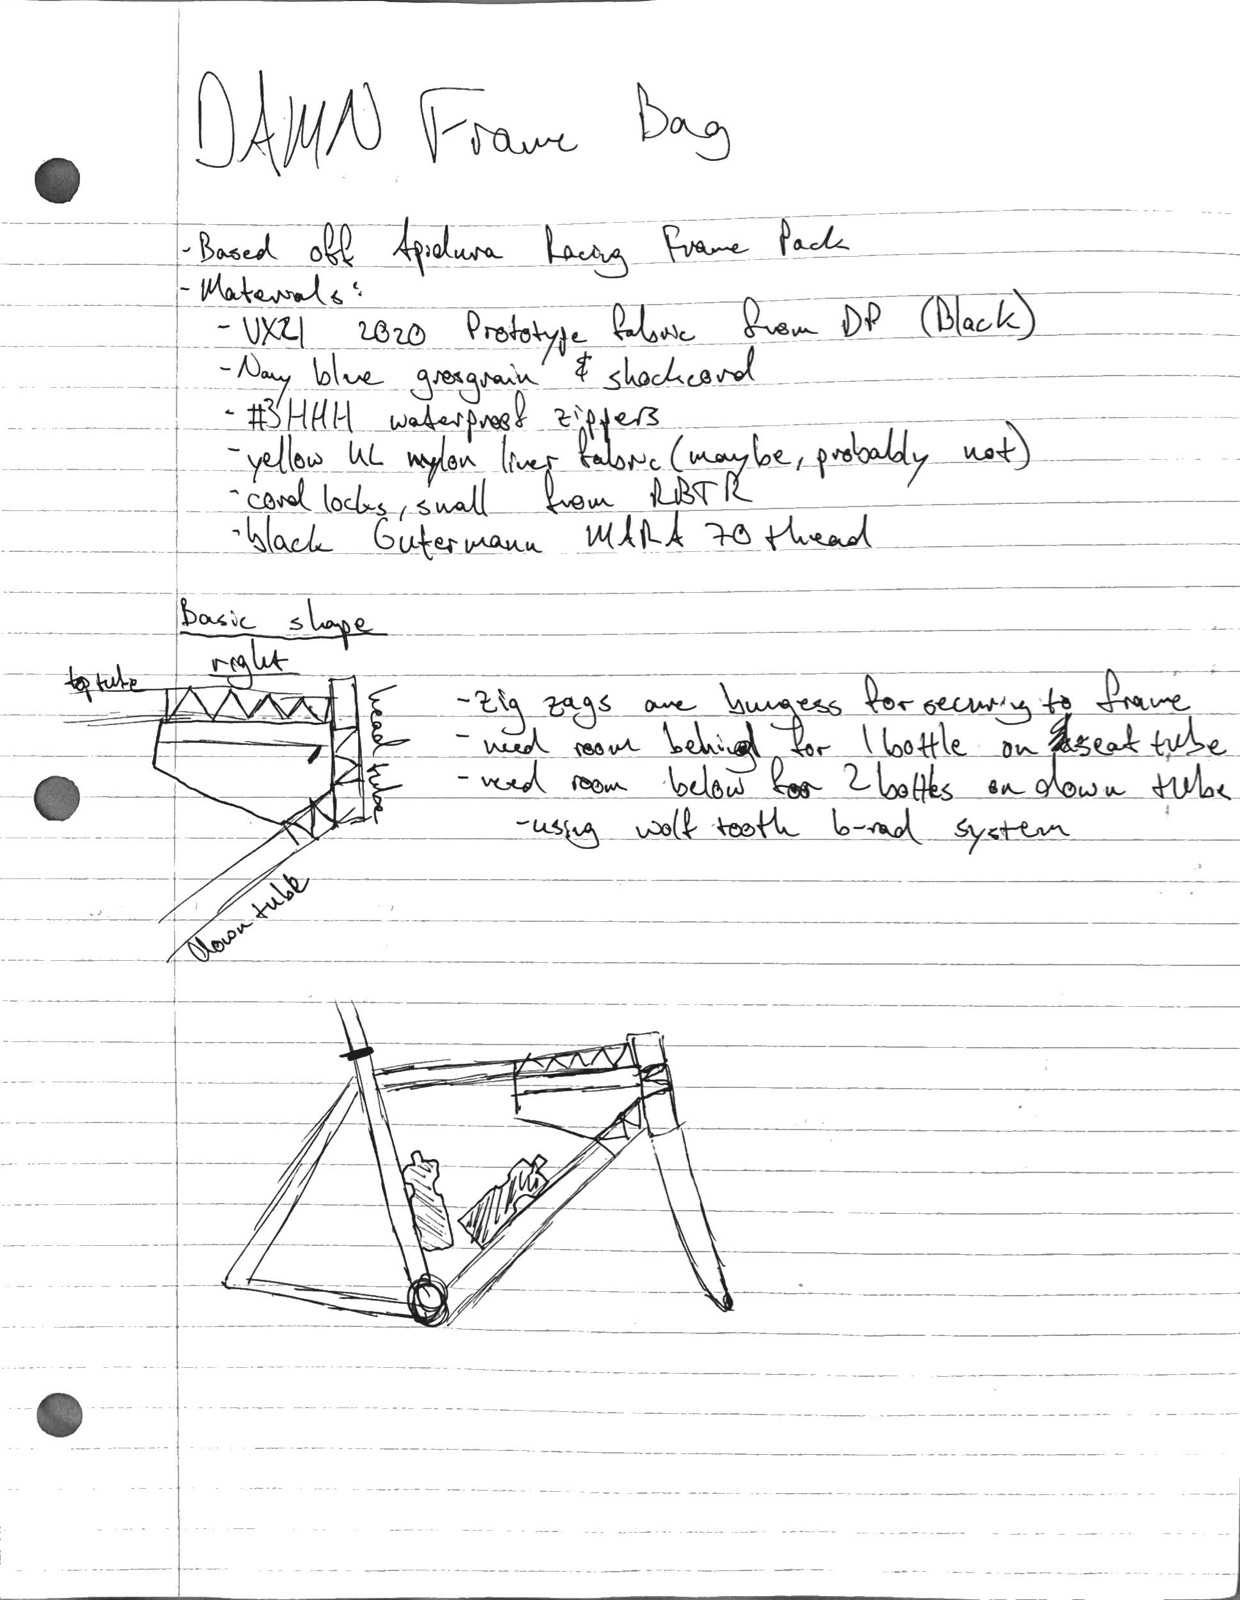 DAMN Frame Bag
- Based off Apidura Racing Frame Pack
- Materials:
- VX21 2020 Prototype fabric from DP (Black)
- Navy blue grosgrain & shockcord
- #3 HHH waterproof zippers
- yellow UL nylon liner fabric (maybe, probably not)
- cord locks, small from RBTR
- black Gutermann MARA 70 thread
Basic shape
right
top tube
head tube
- zig zags are bungess for securing to frame
- need room behind for 1 bottle on seat tube
- need room below for 2 bottles on down tube
- using wolf tooth b-rad system
down tube